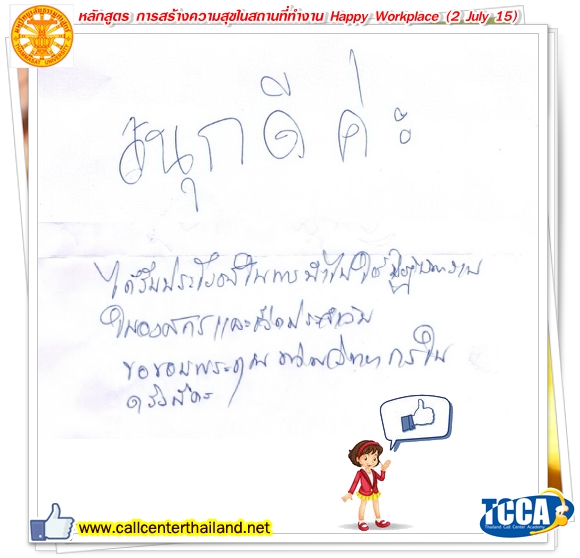 หลักสูตร การสร้างความสุขในสถานที่ทำงาน Happy Workplace (2 July 15)
มหาวิทยาลัยธรรมศาสตร์
THAMMASAT UNIVERSITY
สนุกดี ค่ะ
ได้รับประโยชน์ในการนำไปใช้
ในองค์กร และชีวิตประจำวัน
ขอขอบพระคุณ วิทยากรใน
ครั้งนี้ค่ะ
www.callcenterthailand.net
TCCA
Thailand Call Center Academy